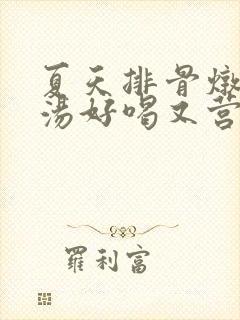 夏天排骨燉
湯好喝又营
羅利富